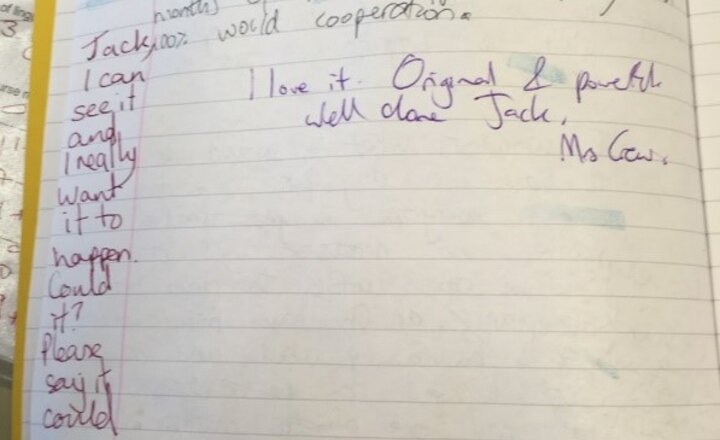 months
Jack, 100% would cooperation.
I can
see it
and
I really
want
it to
happen.
Could
it?
Please
say it
could
I love it. Original & powerful
well done Jack.
Ms